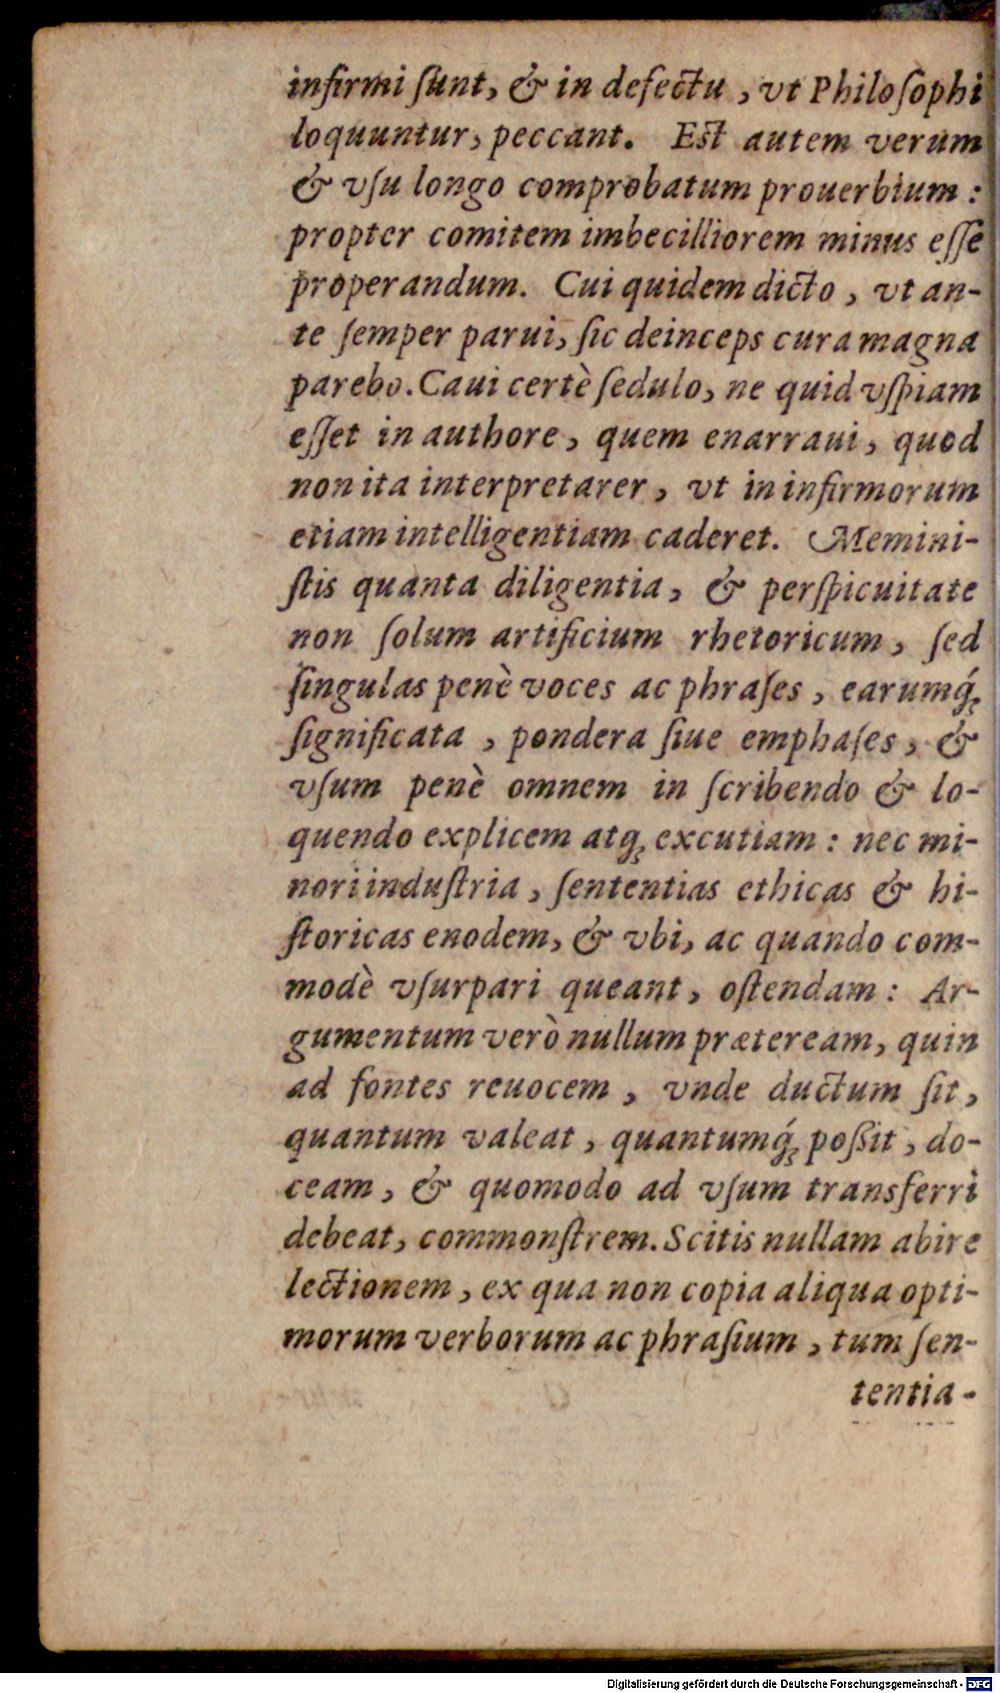 infirmi ſunt, & in defectu, vt Philoſophi
loquuntur, peccant. Est autem verum
& vſu longo comprobatum prouerbium:
propter comitem imbecilliorem minus eſſe
properandum. Cui quidem dicto, vt an-
te ſemper parui, ſic deinceps cura magna
parebo. Caui certè ſedulo, ne quid vſpiam
eſſet in authore, quem enarraui, quod
non ita interpretarer, vt in infirmorum
etiam intelligentiam caderet. Memini-
ſtis quanta diligentia, & perſpicuitate
non ſolum artificium rhetoricum, ſed
ſingulas penè voces ac phraſes, earumq́;
ſignificata, pondera ſiue emphaſes, &
vſum penè omnem in ſcribendo & lo-
quendo explicem atq; excutiam: nec mi-
nori induſtria, ſententias ethicas & hi-
ſtoricas enodem, & vbi, ac quando com-
modè vſurpari queant, oſtendam: Ar-
gumentum verò nullum præteream, quin
ad fontes reuocem, vnde ductum ſit,
quantum valeat, quantumq́; poßit, do-
ceam, & quomodo ad vſum transferri
debeat, commonſtrem. Scitis nullam abire
lectionem, ex qua non copia aliqua opti-
morum verborum ac phraſium, tum ſen-
tentia-
Digitalisierung gefördert durch die Deutsche Forschungsgemeinschaft - DFG